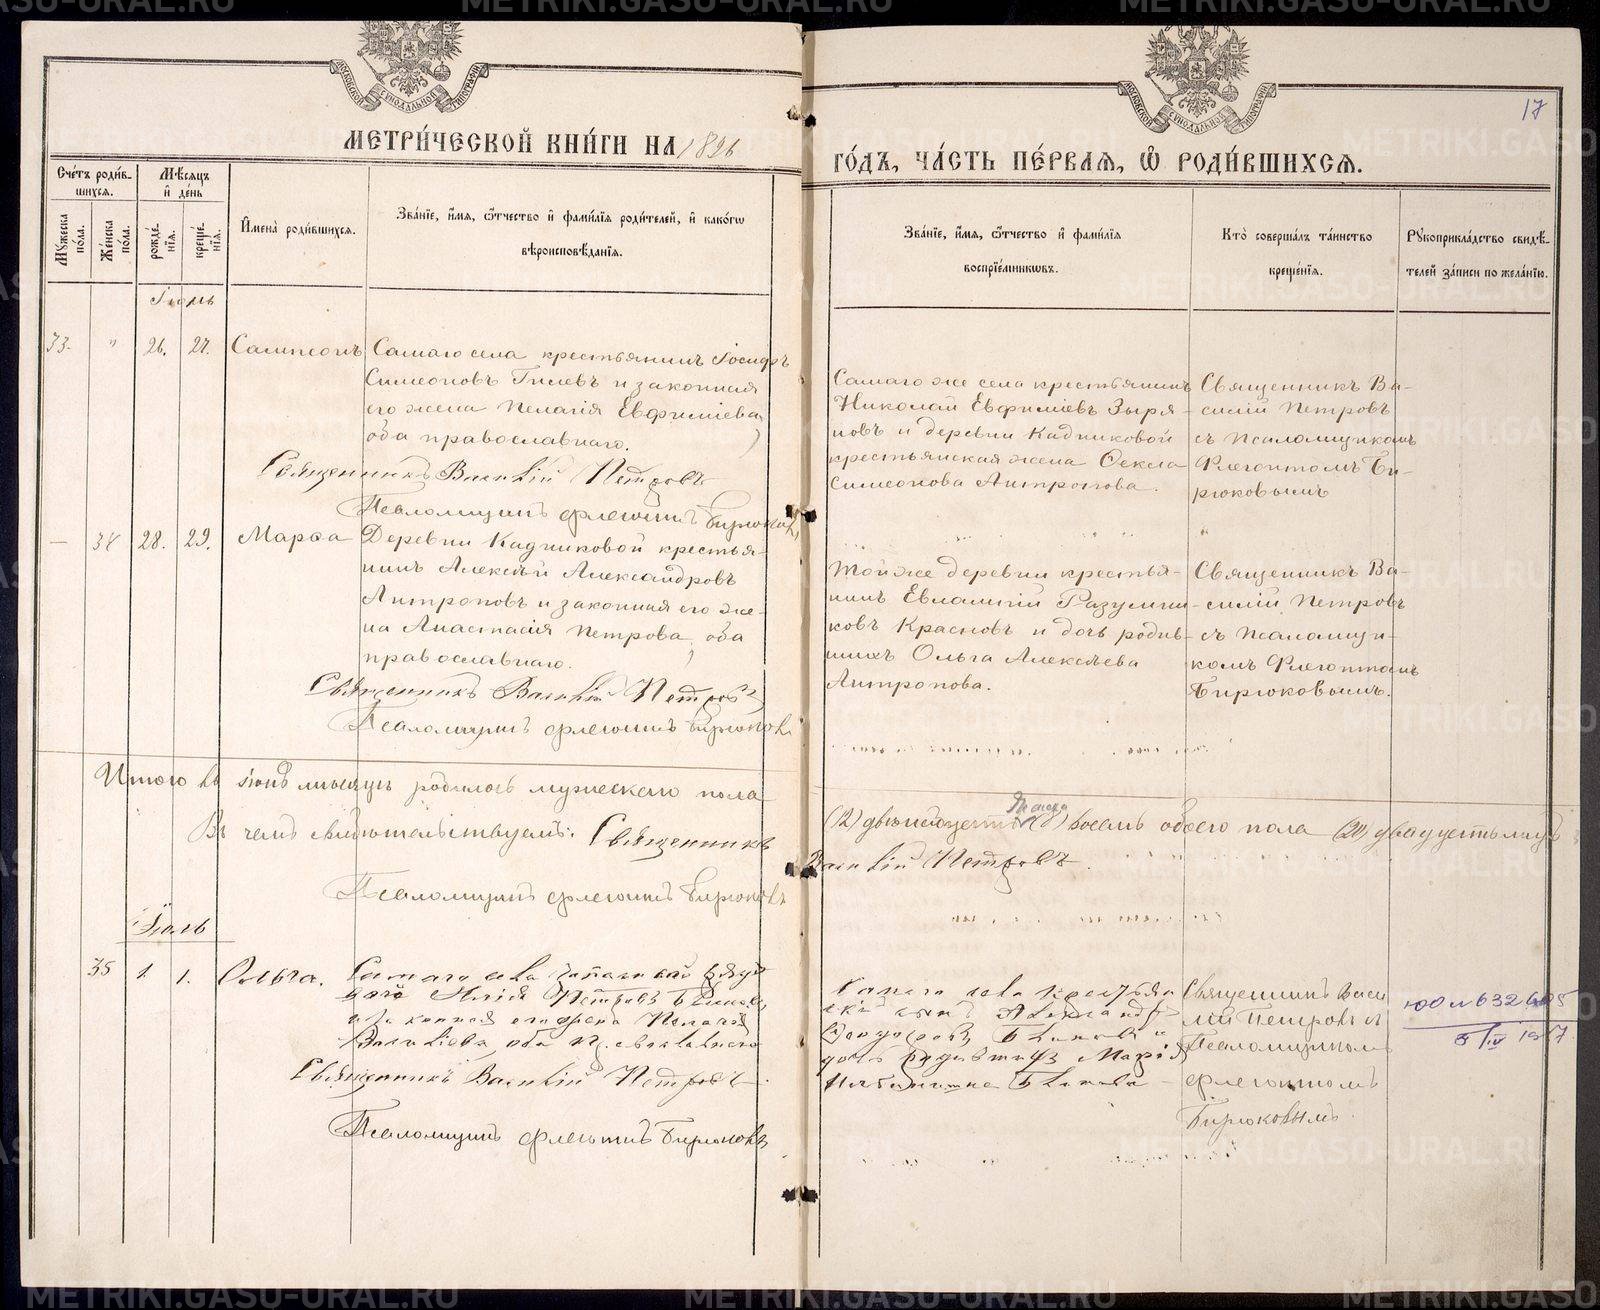 МЕТРИ́ЧЕСКОЙ КНИ́ГИ НА 1896
ГО́ДЪ, ЧА́СТЬ ПЕ́РВАЯ, Ѡ҆ РОДИ́ВШИХСЯ.
17
МОСКОВСКОЙ СѴНОДАЛЬНОЙ ТИПОГРАФІИ
МОСКОВСКОЙ СѴНОДАЛЬНОЙ ТИПОГРАФІИ
Сче́тъ роди́в-
шихся.
Мѣ́сяцъ
и҆ де́нь
Мꙋ́жеска
пола.
Же́нска
пола.
рожде́-
нїѧ.
креще́-
нїѧ.
И҆мена̀ роди́вшихся.
Зва́нїе, и҆́мѧ, ѻ҆́тчество и҆ фами́лїѧ роди́телей, и҆ како́гѡ
вѣроисповѣ́данїѧ.
Зва́нїе, и҆́мѧ, ѻ҆́тчество и҆ фами́лїѧ
воспрїе́мникѡвъ.
Кто̀ соверша́лъ та́инство
креще́нїѧ.
Рꙋкоприкла́дство свидѣ́-
телей за́писи по жела́нїю.
Іюнь
33. " 26. 27. Сампсонъ
Самаго села крестьянинъ Іосифъ
Симеоновъ Гилевъ и законная
его жена Пелагія Евфиміева,
оба православнаго.
Священникъ Василій Петровъ
Псаломщикъ Флегонтъ Бирюковъ
Самаго же села крестьянинъ
Николай Евфиміевъ Зыря-
новъ и деревни Кадниковой
крестьянская жена Ѳекла
Симеонова Антропова.
Священникъ Ва-
силій Петровъ
съ псаломщикомъ
Флегонтомъ Би-
рюковымъ
— 34 28. 29. Марѳа
Деревни Кадниковой крестья-
нинъ Алексѣй Александровъ
Антроповъ и законная его же-
на Анастасія Петрова, оба
православнаго.
Священникъ Василій Петровъ
Псаломщикъ Флегонтъ Бирюковъ
Той же деревни крестья-
нинъ Евлампій Разумни-
ковъ Красновъ и дочь родив-
шихъ Ольга Алексѣева
Антропова.
Священникъ Ва-
силій Петровъ
съ псаломщи-
комъ Флегонтомъ
Бирюковымъ.
Итого въ іюнѣ мѣсяцѣ родилось мужескаго пола
(12) двѣнадцать (8) восемь обоего пола (20) двадцать
Въ чемъ свидѣтельствуемъ: Священникъ
Василій Петровъ
Псаломщикъ Флегонтъ Бирюковъ
Іюль
35 1. 1. Ольга.
Самаго села запасный
Илія Петровъ
и законная его жена Пелагія
Василіева, оба православнаго
Священникъ Василій Петровъ.
Псаломщикъ Флегонтъ Бирюковъ
Самаго села крестьян-
скій сынъ Александръ
и
дочь Марія
Священникъ Васи
лій Петровъ съ
Псаломщикомъ
Флегонтомъ
Бирюковымъ.
METRIKI.GASO-URAL.RU